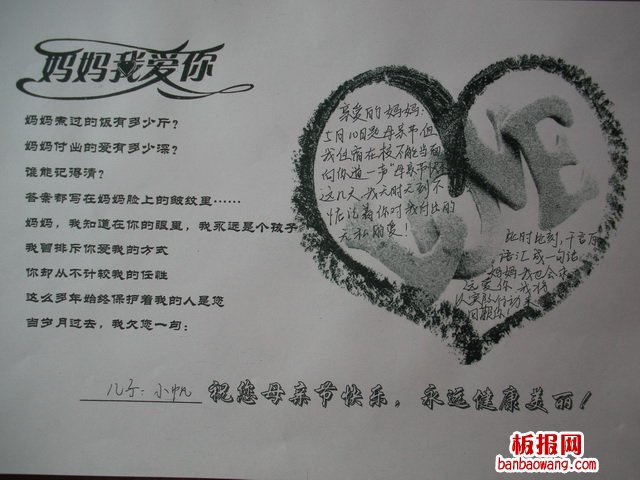 妈妈我爱你
妈妈煮过的饭有多少斤？
妈妈付出的爱有多少深？
谁能记得清？
答案都写在妈妈脸上的皱纹里……
妈妈，我知道在你的眼里，我永远是个孩子
我曾排斥你爱我的方式
你却从不计较我的任性
这么多年始终保护着我的人是您
当岁月过去，我欠您一句：
亲爱的妈妈：
5月10日是母亲节但
我住宿在校不能当面
向你道一声"母亲节
这几天，我无时无刻不
惦记着你对我付出的
无私的爱！
LOVE
此时此刻，千言万
语汇成一句话
妈妈我也会永
远爱你 我将
以实际行动来
回报你！
儿子：小帆 祝您母亲节快乐，永远健康美丽！
板报网
banbaowang.com